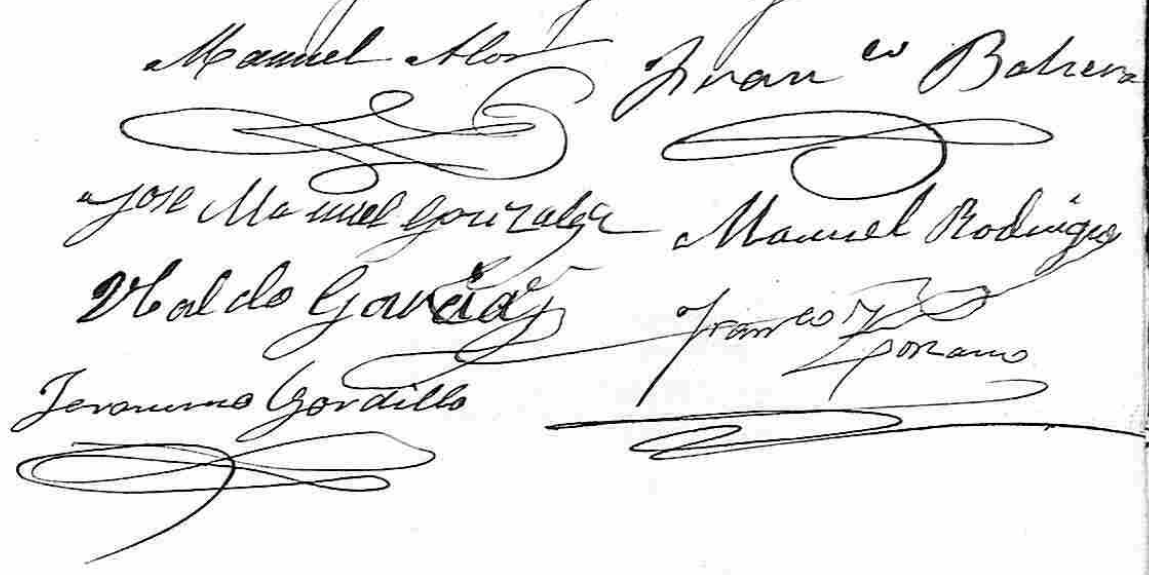 Manuel Alos Franco Bahena
Jose Manuel Gonzalez Manuel Rodriguez
Ubaldo Garcia Franco
Jeronimo Gordillo